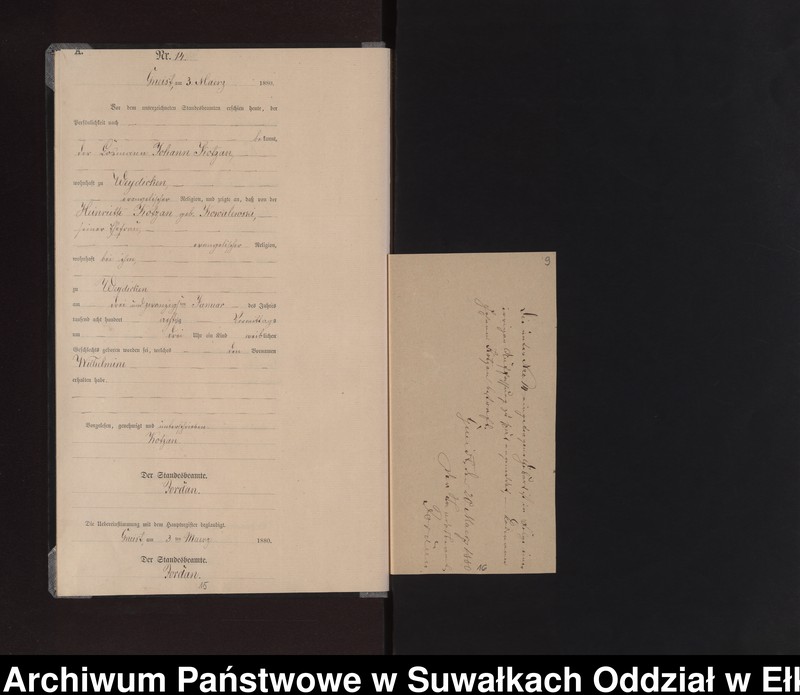 A.
Nr. 14.
am 3. Maerz 1880.
Vor dem unterzeichneten Standesbeamten erschien heute, der
Persönlichkeit nach
bekannt,
der Losmann Johann Kotzan,
wohnhaft zu Weydicken
evangelischer Religion, und zeigte an, daß von der
Henriette Kotzan geb. Kowalewski,
seiner Ehefrau,
evangelischer Religion,
wohnhaft bei ihm,
zu Weydicken
am drei und zwanzigsten Januar des Jahres
tausend acht hundert achtzig Vormittags
um drei Uhr ein Kind weiblichen
Geschlechts geboren worden sei, welches den Vornamen
Wilhelmine
erhalten habe.
Vorgelesen, genehmigt und unterschrieben
Kotzan.
Der Standesbeamte.
Jordan.
Die Uebereinstimmung mit dem Hauptregister beglaubigt.
am 3ten Maerz 1880.
Der Standesbeamte.
Jordan.
15
9
Johann Kotzan
den 20 Maerz 1880
Der Standesbeamte
Jordan.
16
Archiwum Państwowe w Suwałkach Oddział w Eł